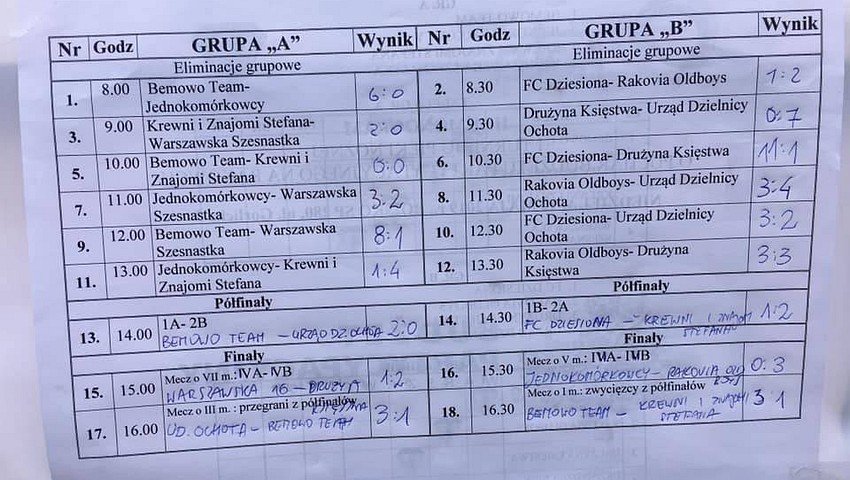 Nr Godz GRUPA „A” Wynik Nr Godz GRUPA „B” Wynik
Eliminacje grupowe Eliminacje grupowe
1. 8.00 Bemowo Team-
Jednokomórkowcy 6:0
2. 8.30 FC Dziesiona- Rakovia Oldboys 1:2
3. 9.00 Krewni i Znajomi Stefana-
Warszawska Szesnastka 2:0
4. 9.30 Drużyna Księstwa- Urząd Dzielnicy
Ochota 0:7
5. 10.00 Bemowo Team- Krewni i
Znajomi Stefana 0:0
6. 10.30 FC Dziesiona- Drużyna Księstwa 11:1
7. 11.00 Jednokomórkowcy- Warszawska
Szesnastka 3:2
8. 11.30 Rakovia Oldboys- Urząd Dzielnicy
Ochota 3:4
9. 12.00 Bemowo Team- Warszawska
Szesnastka 8:1
10. 12.30 FC Dziesiona- Urząd Dzielnicy
Ochota 3:2
11. 13.00 Jednokomórkowcy- Krewni i
Znajomi Stefana 1:4
12. 13.30 Rakovia Oldboys- Drużyna
Księstwa 3:3
Półfinały Półfinały
13. 14.00 1A- 2B
BEMOWO TEAM – URZĄD DZ. OCHOTA 2:0
14. 14.30 1B- 2A
FC DZIESIONA – KREWNI I ZNAJOMI
STEFANA 1:2
Finały Finały
15. 15.00 Mecz o VII m.: IVA- IVB
WARSZAWSKA 16 – DRUŻYNA
KSIĘSTWA 1:2
16. 15.30 Mecz o V m.: IIIA- IIIB
JEDNOKOMÓRKOWCY – RAKOVIA OLD
BOYS 0:3
17. 16.00 Mecz o III m.: przegrani z półfinałów
UD. OCHOTA – BEMOWO TEAM 3:1
18. 16.30 Mecz o I m.: zwycięzcy z półfinałów
BEMOWO TEAM – KREWNI I ZNAJOMI
STEFANA 3:1